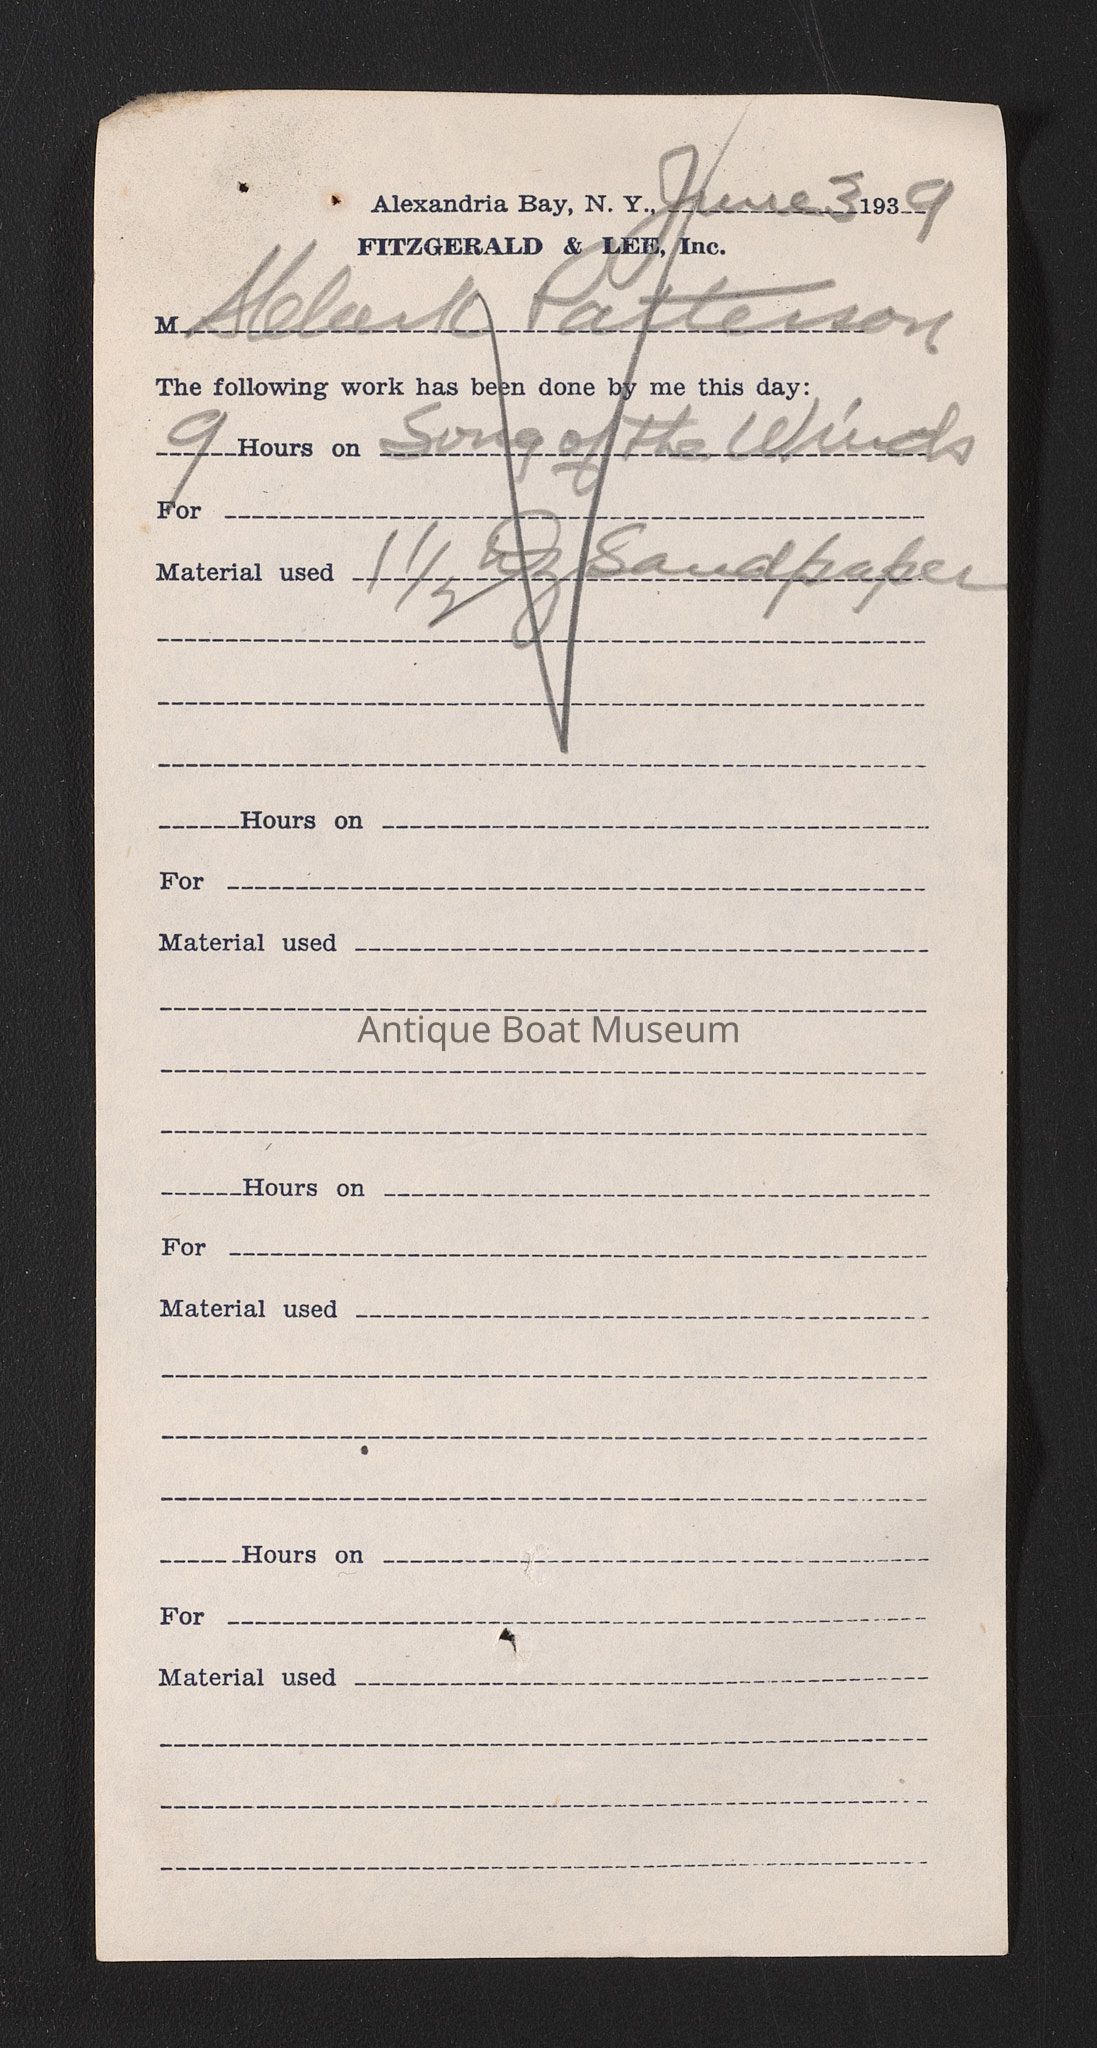 Alexandria Bay, N. Y., June 3 1939
FITZGERALD & LEE, Inc.
M Patterson
The following work has been done by me this day:
9 Hours on Song of the Winds
For
Material used 1 1/2 Dz Sandpaper
Hours on
For
Material used
Antique Boat Museum
Hours on
For
Material used
Hours on
For
Material used